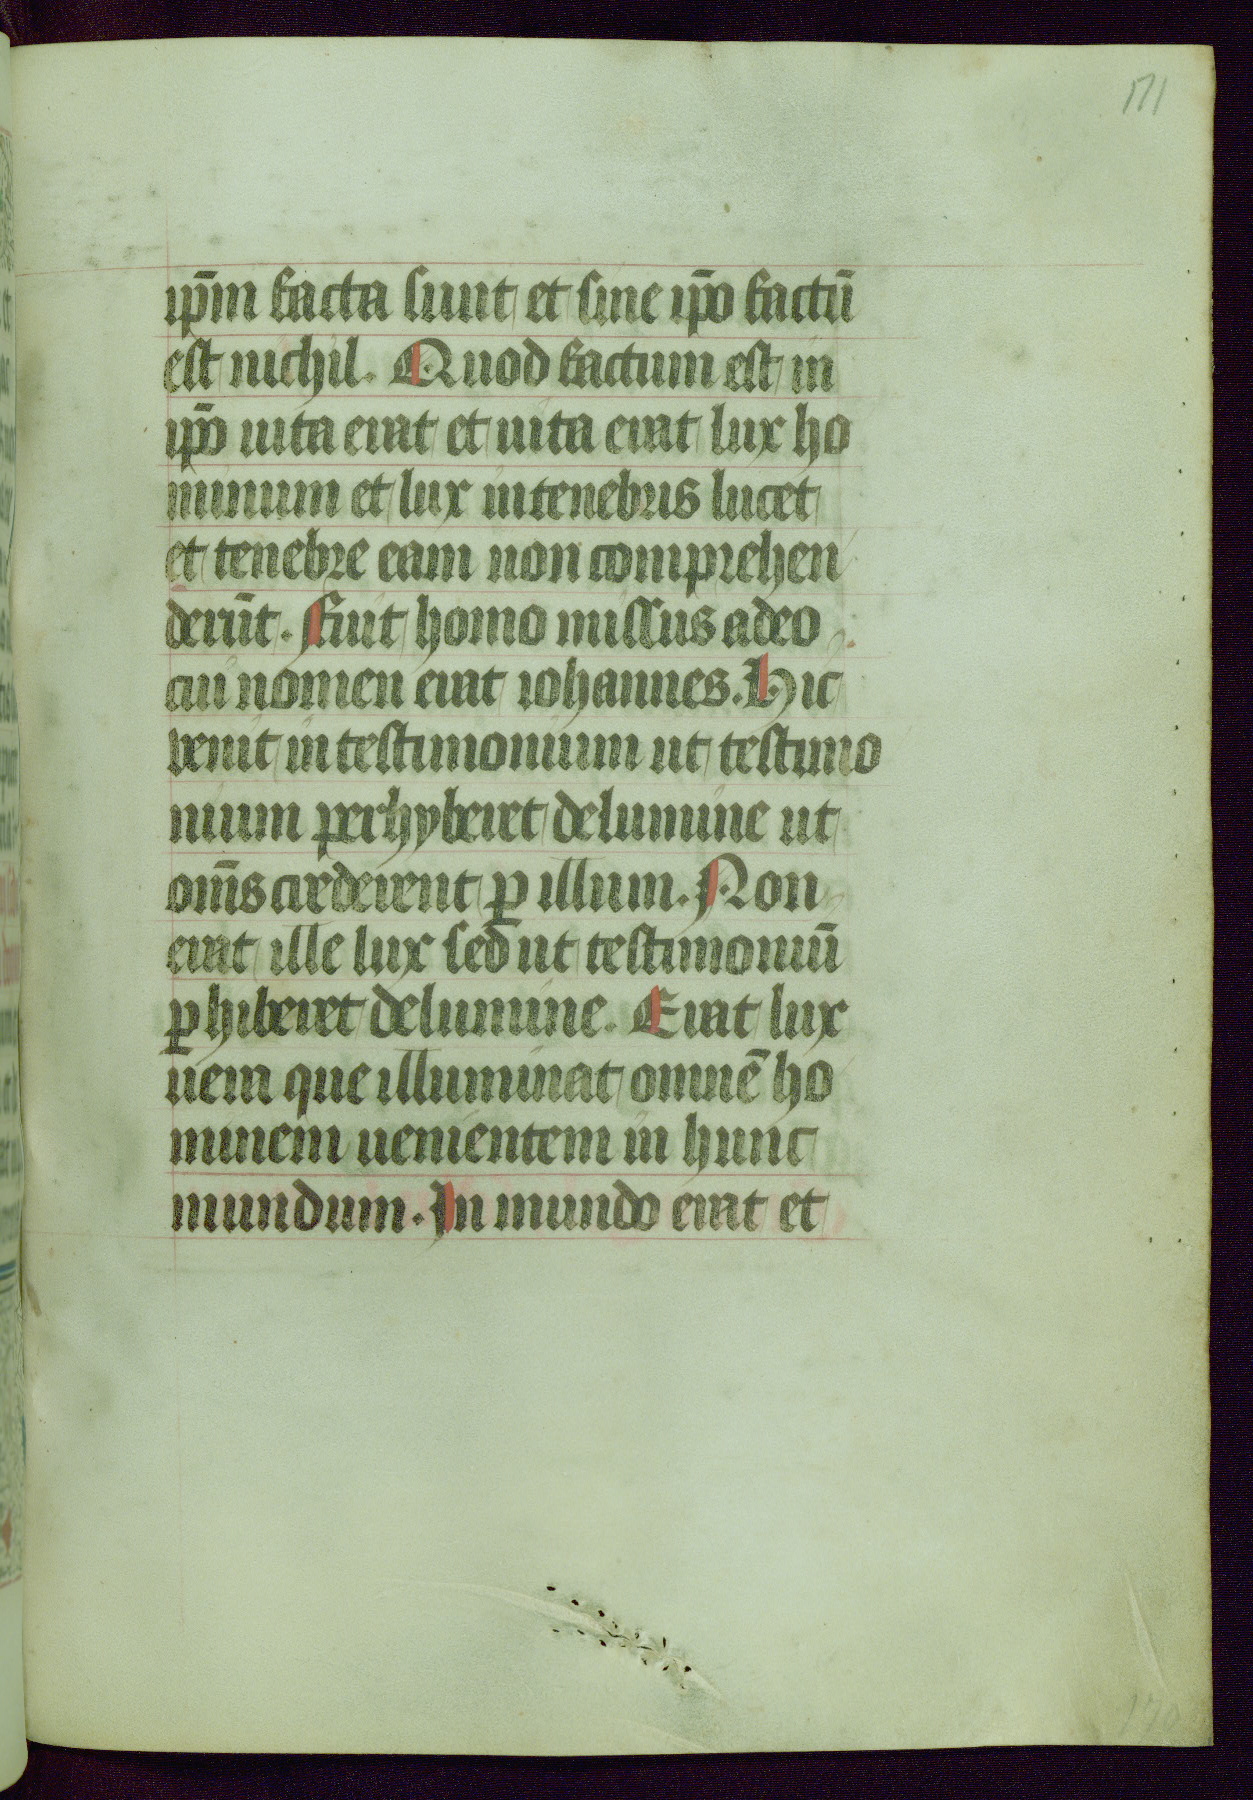 171
ip̄m facta sunt et sine ip̄o factū
est nichil. Quod factum est in
ip̄o uita erat et uita erat lux ho
minum et lux in tenebris lucet
et tenebre eam non comprehen
derūt. Fuit homo missus a deo
cui nomen erat iohannes. Hic
venit in testimonium ut testimo
nium perhyberet de lumine ut
om̄s crederent ꝑ illum. Non
erat ille lux sed ut testimoniū
ꝑhiberet de lumine. Erat lux
uera que illuminat omnē ho
minem uenientem in hunc
mundum. In mundo erat et
170